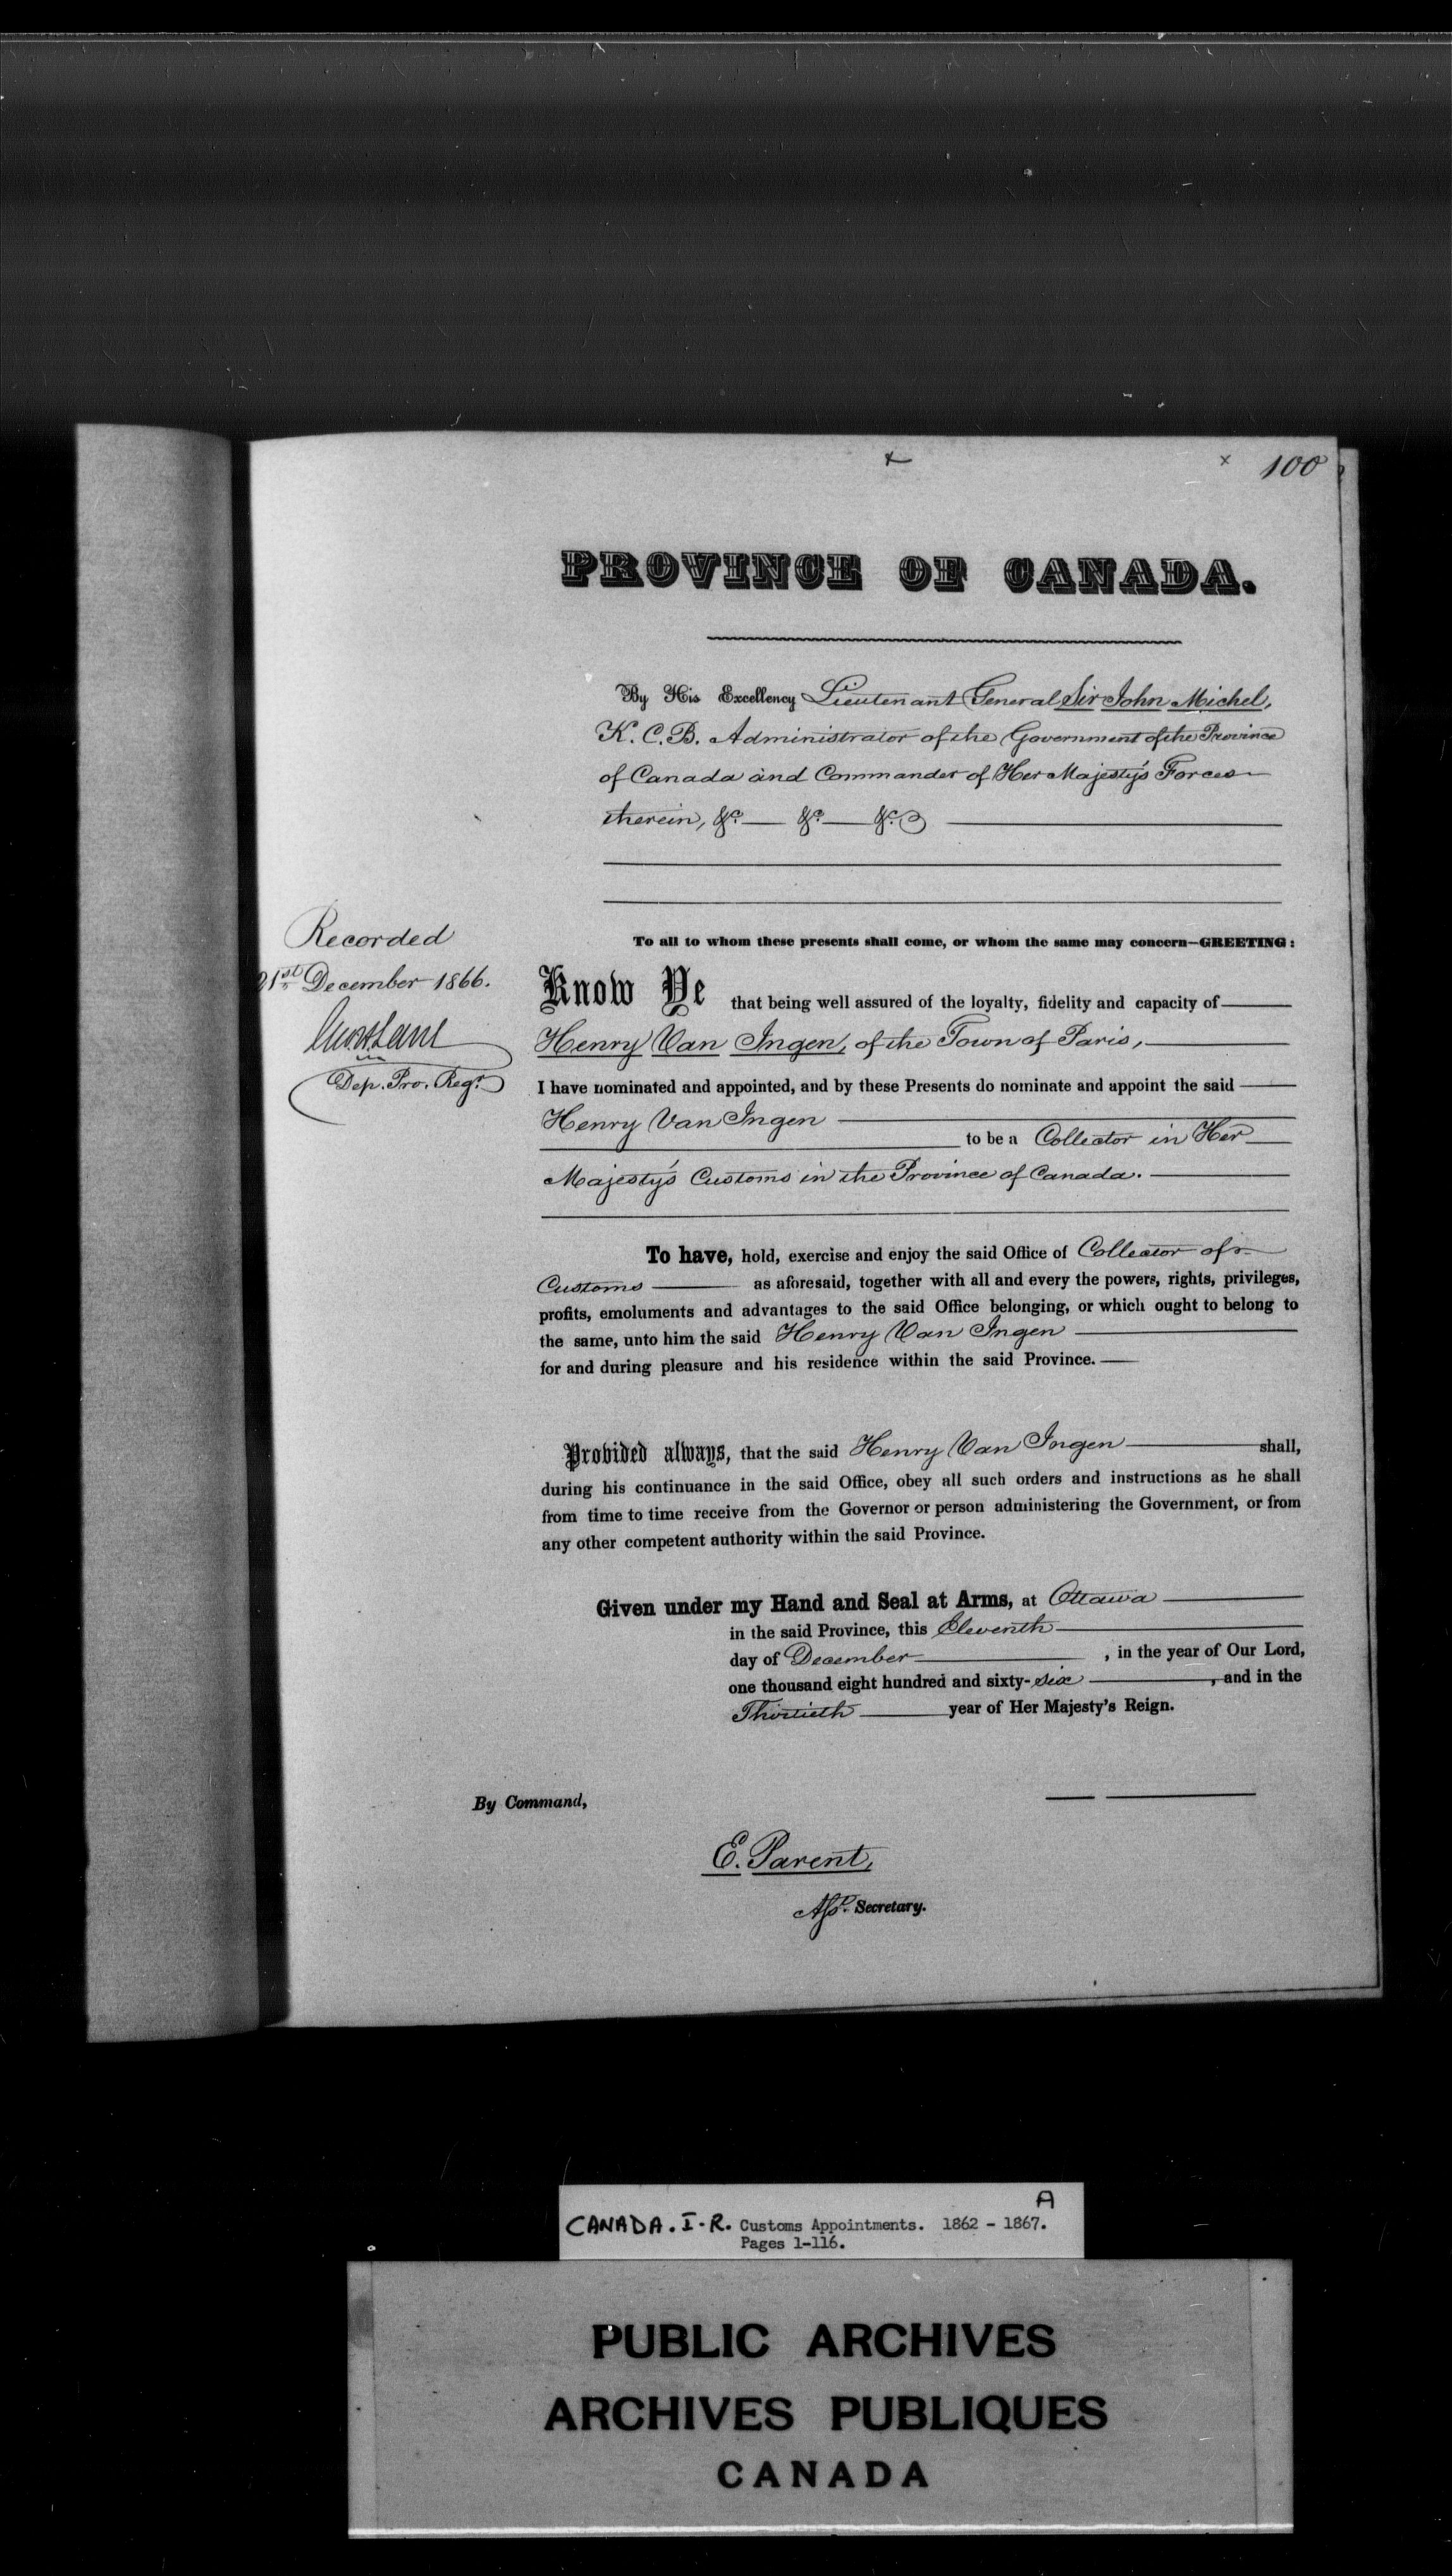 100
PROVINCE OF CANADA.
By His Excellency Lieutenant General Sir John Michel,
K.C.B. Administrator of the Government of the Province
of Canada and Commander of Her Majesty's Forces
therein, &c. &c. &c.
Recorded
21st December 1866.
Dep. Pro. Regr.
To all to whom these presents shall come, or whom the same may concern—GREETING:
Know Ye that being well assured of the loyalty, fidelity and capacity of
Henry Van Ingen, of the Town of Paris,
I have nominated and appointed, and by these Presents do nominate and appoint the said
Henry Van Ingen
to be a Collector in Her
Majesty's Customs in the Province of Canada.
To have, hold, exercise and enjoy the said Office of Collector of
Customs as aforesaid, together with all and every the powers, rights, privileges,
profits, emoluments and advantages to the said Office belonging, or which ought to belong to
the same, unto him the said Henry Van Ingen
for and during pleasure and his residence within the said Province.
Provided always, that the said Henry Van Ingen shall,
during his continuance in the said Office, obey all such orders and instructions as he shall
from time to time receive from the Governor or person administering the Government, or from
any other competent authority within the said Province.
Given under my Hand and Seal at Arms, at Ottawa
in the said Province, this Eleventh
day of December, in the year of Our Lord,
one thousand eight hundred and sixty-six, and in the
Thirtieth year of Her Majesty's Reign.
By Command,
E. Parent,
Asst. Secretary.
A
CANADA. I-R. Customs Appointments. 1862 - 1867.
Pages 1-116.
PUBLIC ARCHIVES
ARCHIVES PUBLIQUES
CANADA